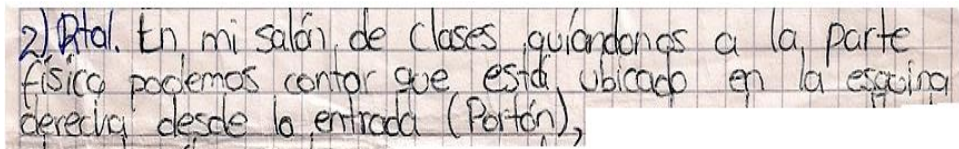 2) Rta/. En mi salón de clases guiandonos a la parte
física podemos contar que está ubicado en la esquina
derecha desde la entrada (Portón),